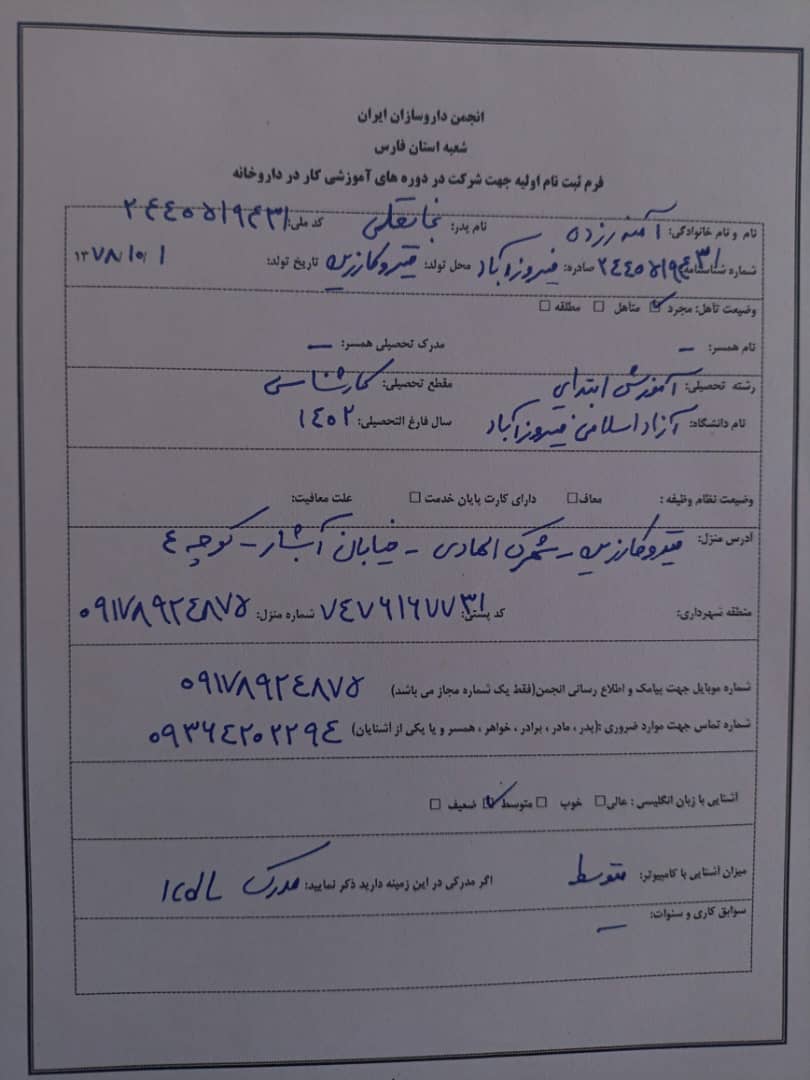 انجمن داروسازان ایران
شعبه استان فارس
فرم ثبت نام اولیه جهت شرکت در دوره های آموزشی کار در داروخانه
نام و نام خانوادگی: آمنه رزده نام پدر: نجاتعلی کد ملی: ۲۴۴۰۵۱۹۴۳۱
شماره شناسنامه: ۲۴۴۰۵۱۹۴۳۱ صادره: فیروزآباد محل تولد: قیروکارزین تاریخ تولد: ۱۳۷۸/۱۰/۱
وضیعت تأهل: مجرد ☑ متأهل ☐ مطلقه ☐
نام همسر: – مدرک تحصیلی همسر: –
رشته تحصیلی: آموزش ابتدایی مقطع تحصیلی: کارشناسی
نام دانشگاه: آزاد اسلامی فیروزآباد سال فارغ التحصیلی: ۱۴۰۲
وضیعت نظام وظیفه : معاف☐ دارای کارت پایان خدمت ☐ علت معافیت:
آدرس منزل: قیروکارزین - شهرک الهادی - خیابان آبشار - کوچه ۴
منطقه شهرداری: کد پستی: ۷۴۷۶۱۶۷۷۳۱ شماره منزل: ۰۹۱۷۸۹۲۴۸۷۵
شماره موبایل جهت پیامک و اطلاع رسانی انجمن(فقط یک شماره مجاز می باشد) ۰۹۱۷۸۹۲۴۸۷۵
شماره تماس جهت موارد ضروری :(پدر ، مادر ، برادر ، خواهر ، همسر و یا یکی از آشنایان) ۰۹۳۶۴۲۰۲۲۹۴
آشنایی با زبان انگلیسی : عالی☐ خوب ☐ متوسط ☑ ضعیف ☐
میزان آشنایی با کامپیوتر: متوسط اگر مدرکی در این زمینه دارید ذکر نمایید: مدرک Icdl
سوابق کاری و سنوات: –